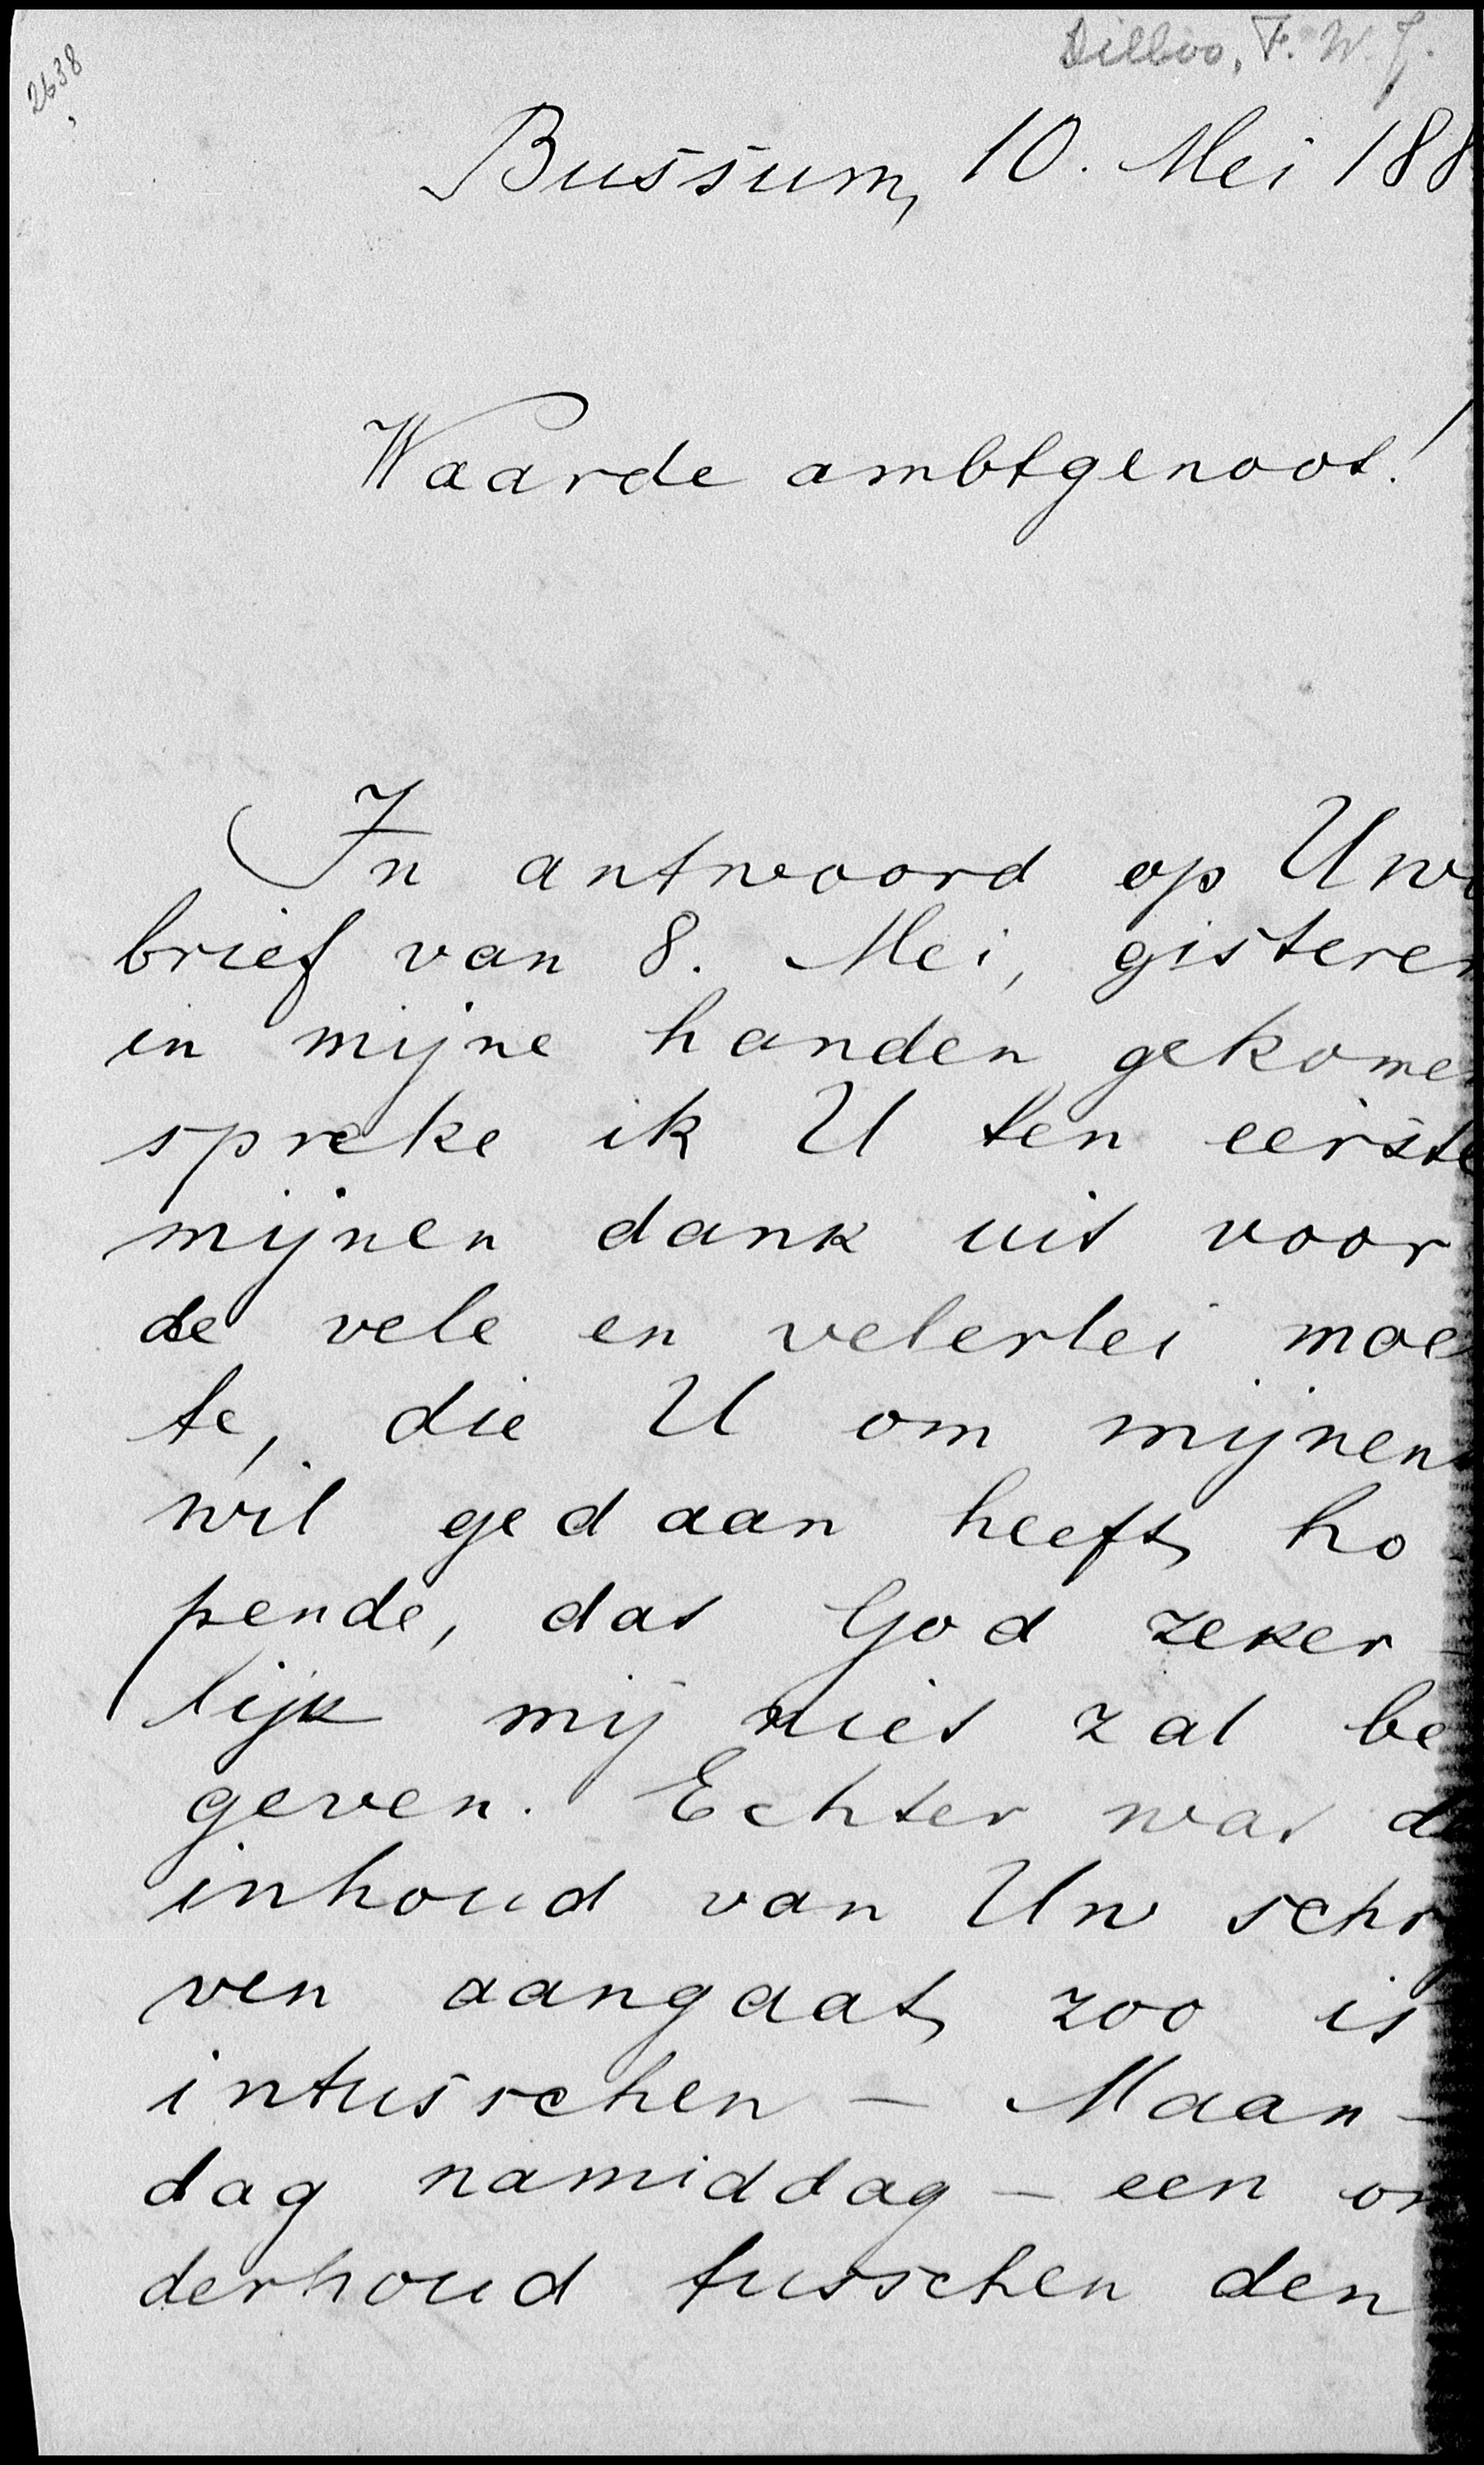 2638
Dilloo, F. W. J.
Bussum, 10. Mei 188
Waarde ambtgenoot!
In antwoord op Uwe
brief van 8. Mei, gisteren
in mijne handen gekomen
spreke ik U ten eerste
mijnen dank uit voor
de vele en velerlei moei
te, die U om mijnent
wil gedaan heeft, ho
pende, dat God zeker-
lijk mij niet zal be
geven. Echter wat de
inhoud van Uw schr
ven aangaat, zoo is
intusschen – Maan-
dag namiddag – een on
derhoud tusschen den